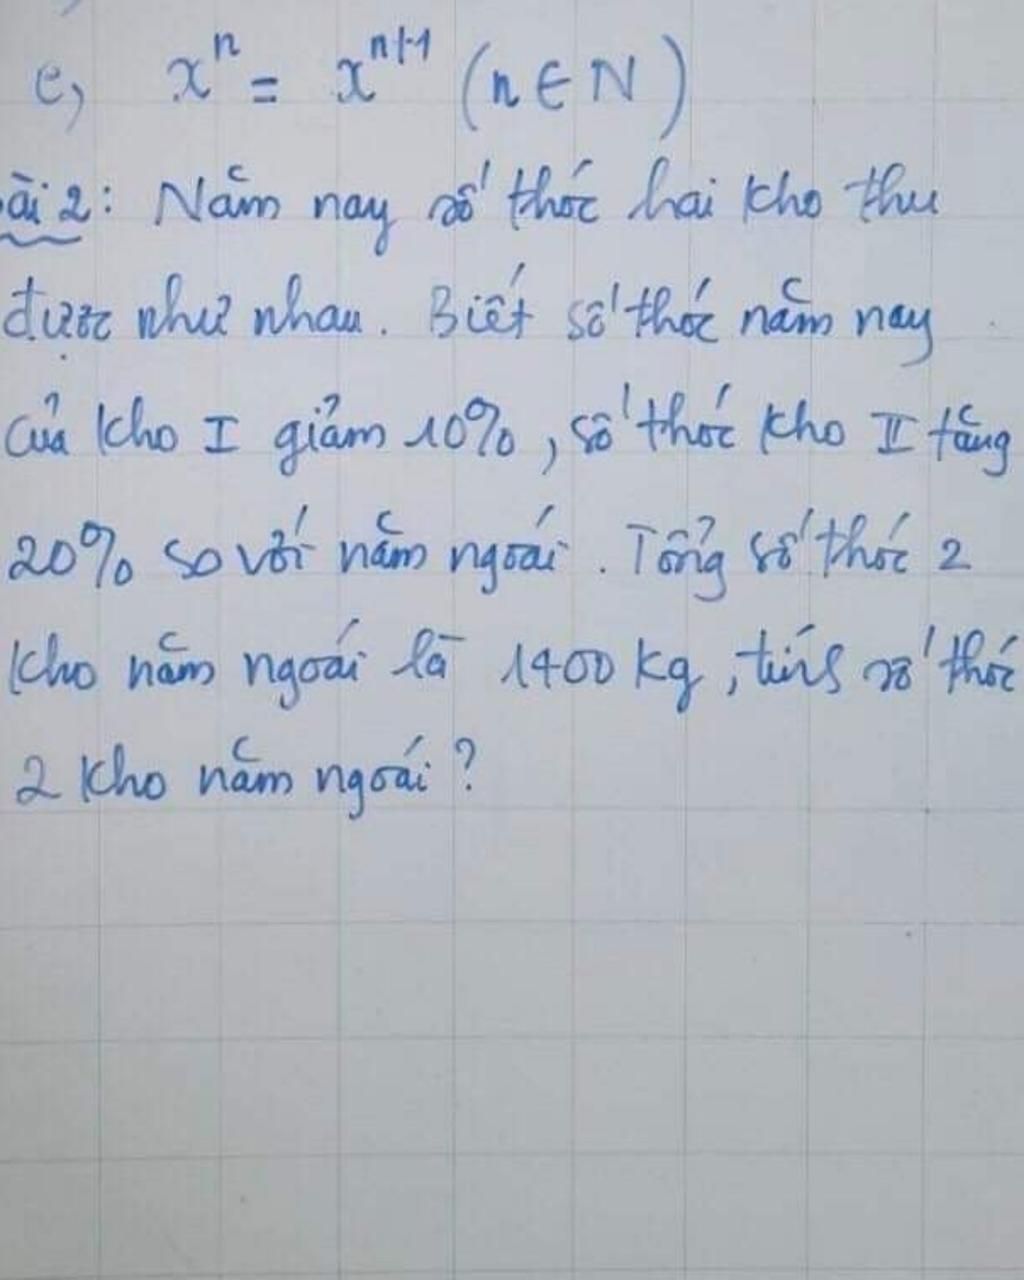 e, xⁿ = xⁿ⁺¹ (n ∈ N)
ài 2: Năm nay số thóc hai kho thu
được như nhau. Biết số thóc năm nay
của kho I giảm 10%, số thóc kho II tăng
20% so với năm ngoái. Tổng số thóc 2
kho năm ngoái là 1400 kg, tính số thóc
2 kho năm ngoái?